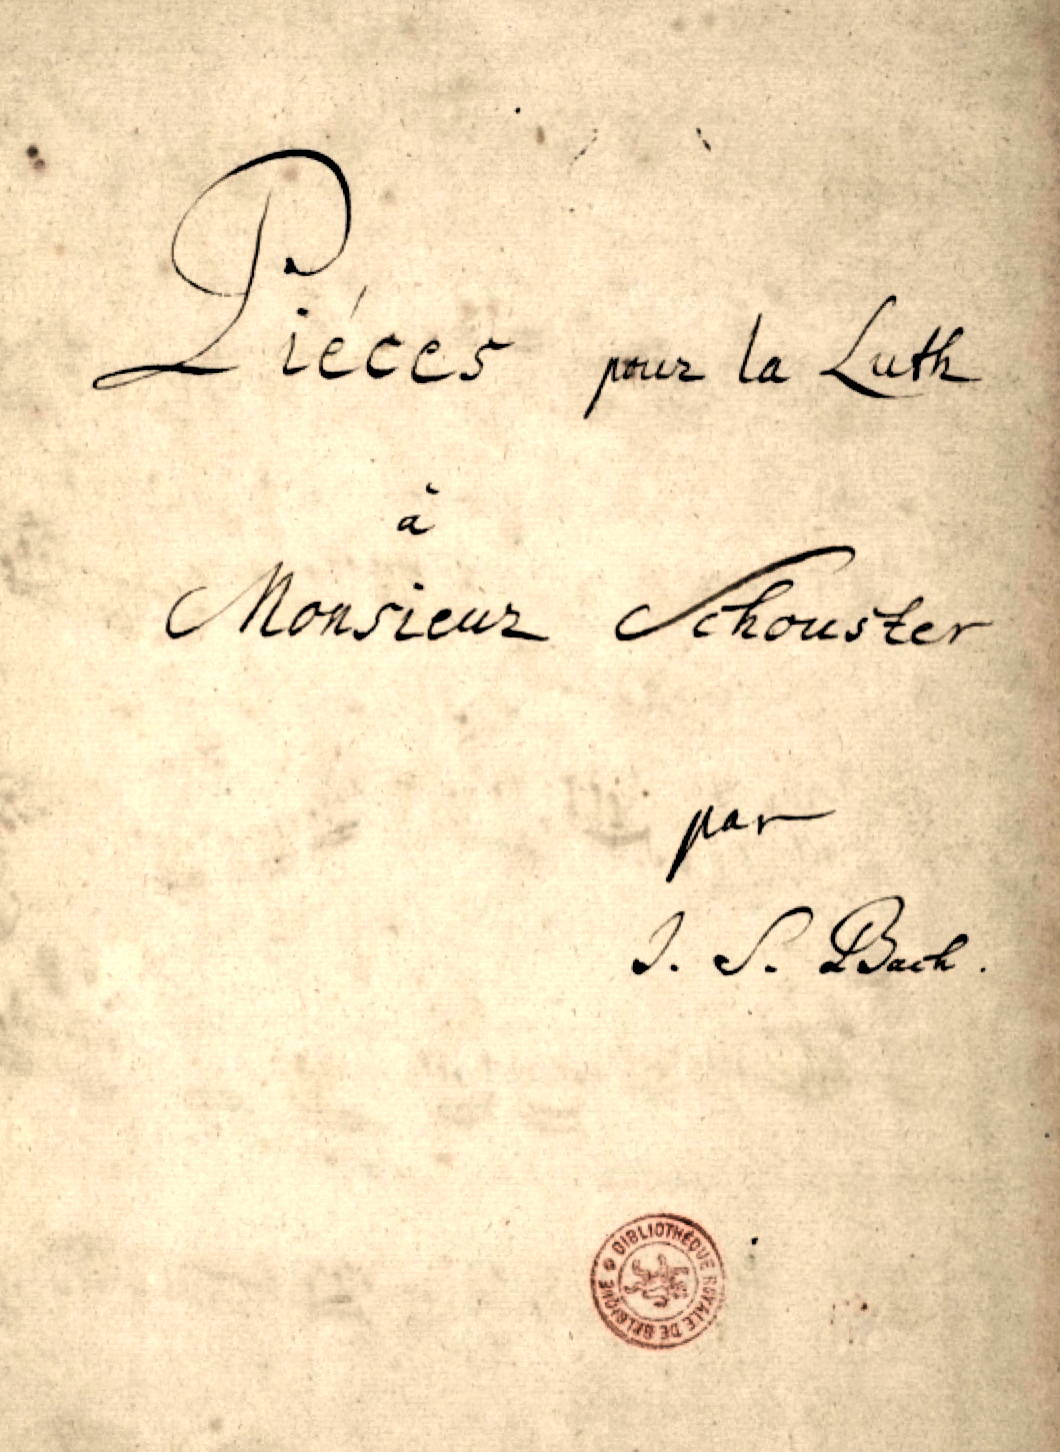 Piéces pour la Luth
à
Monsieur Schouster
par
J. S. Bach.
BIBLIOTHÈQUE ROYALE DE BELGIQUE